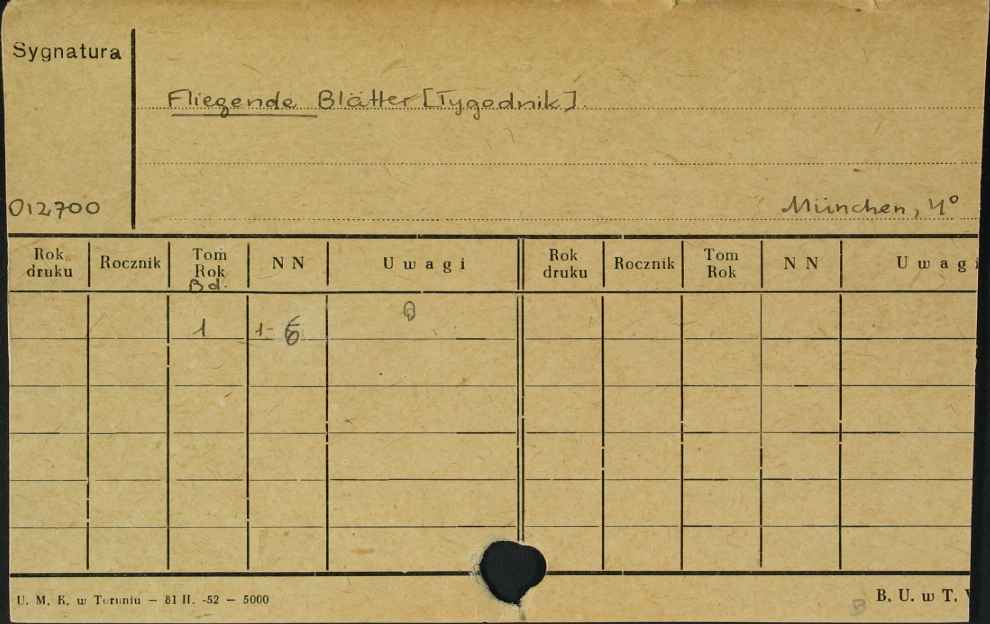 Sygnatura
Fliegende Blätter [Tygodnik].
012700
München, 4°
Rok druku Rocznik Tom Rok Bd. N N Uwagi Rok druku Rocznik Tom Rok N N Uwagi
1 1-6
U. M. K. w Toruniu – 81 II. -52 – 5000
B. U. w T.